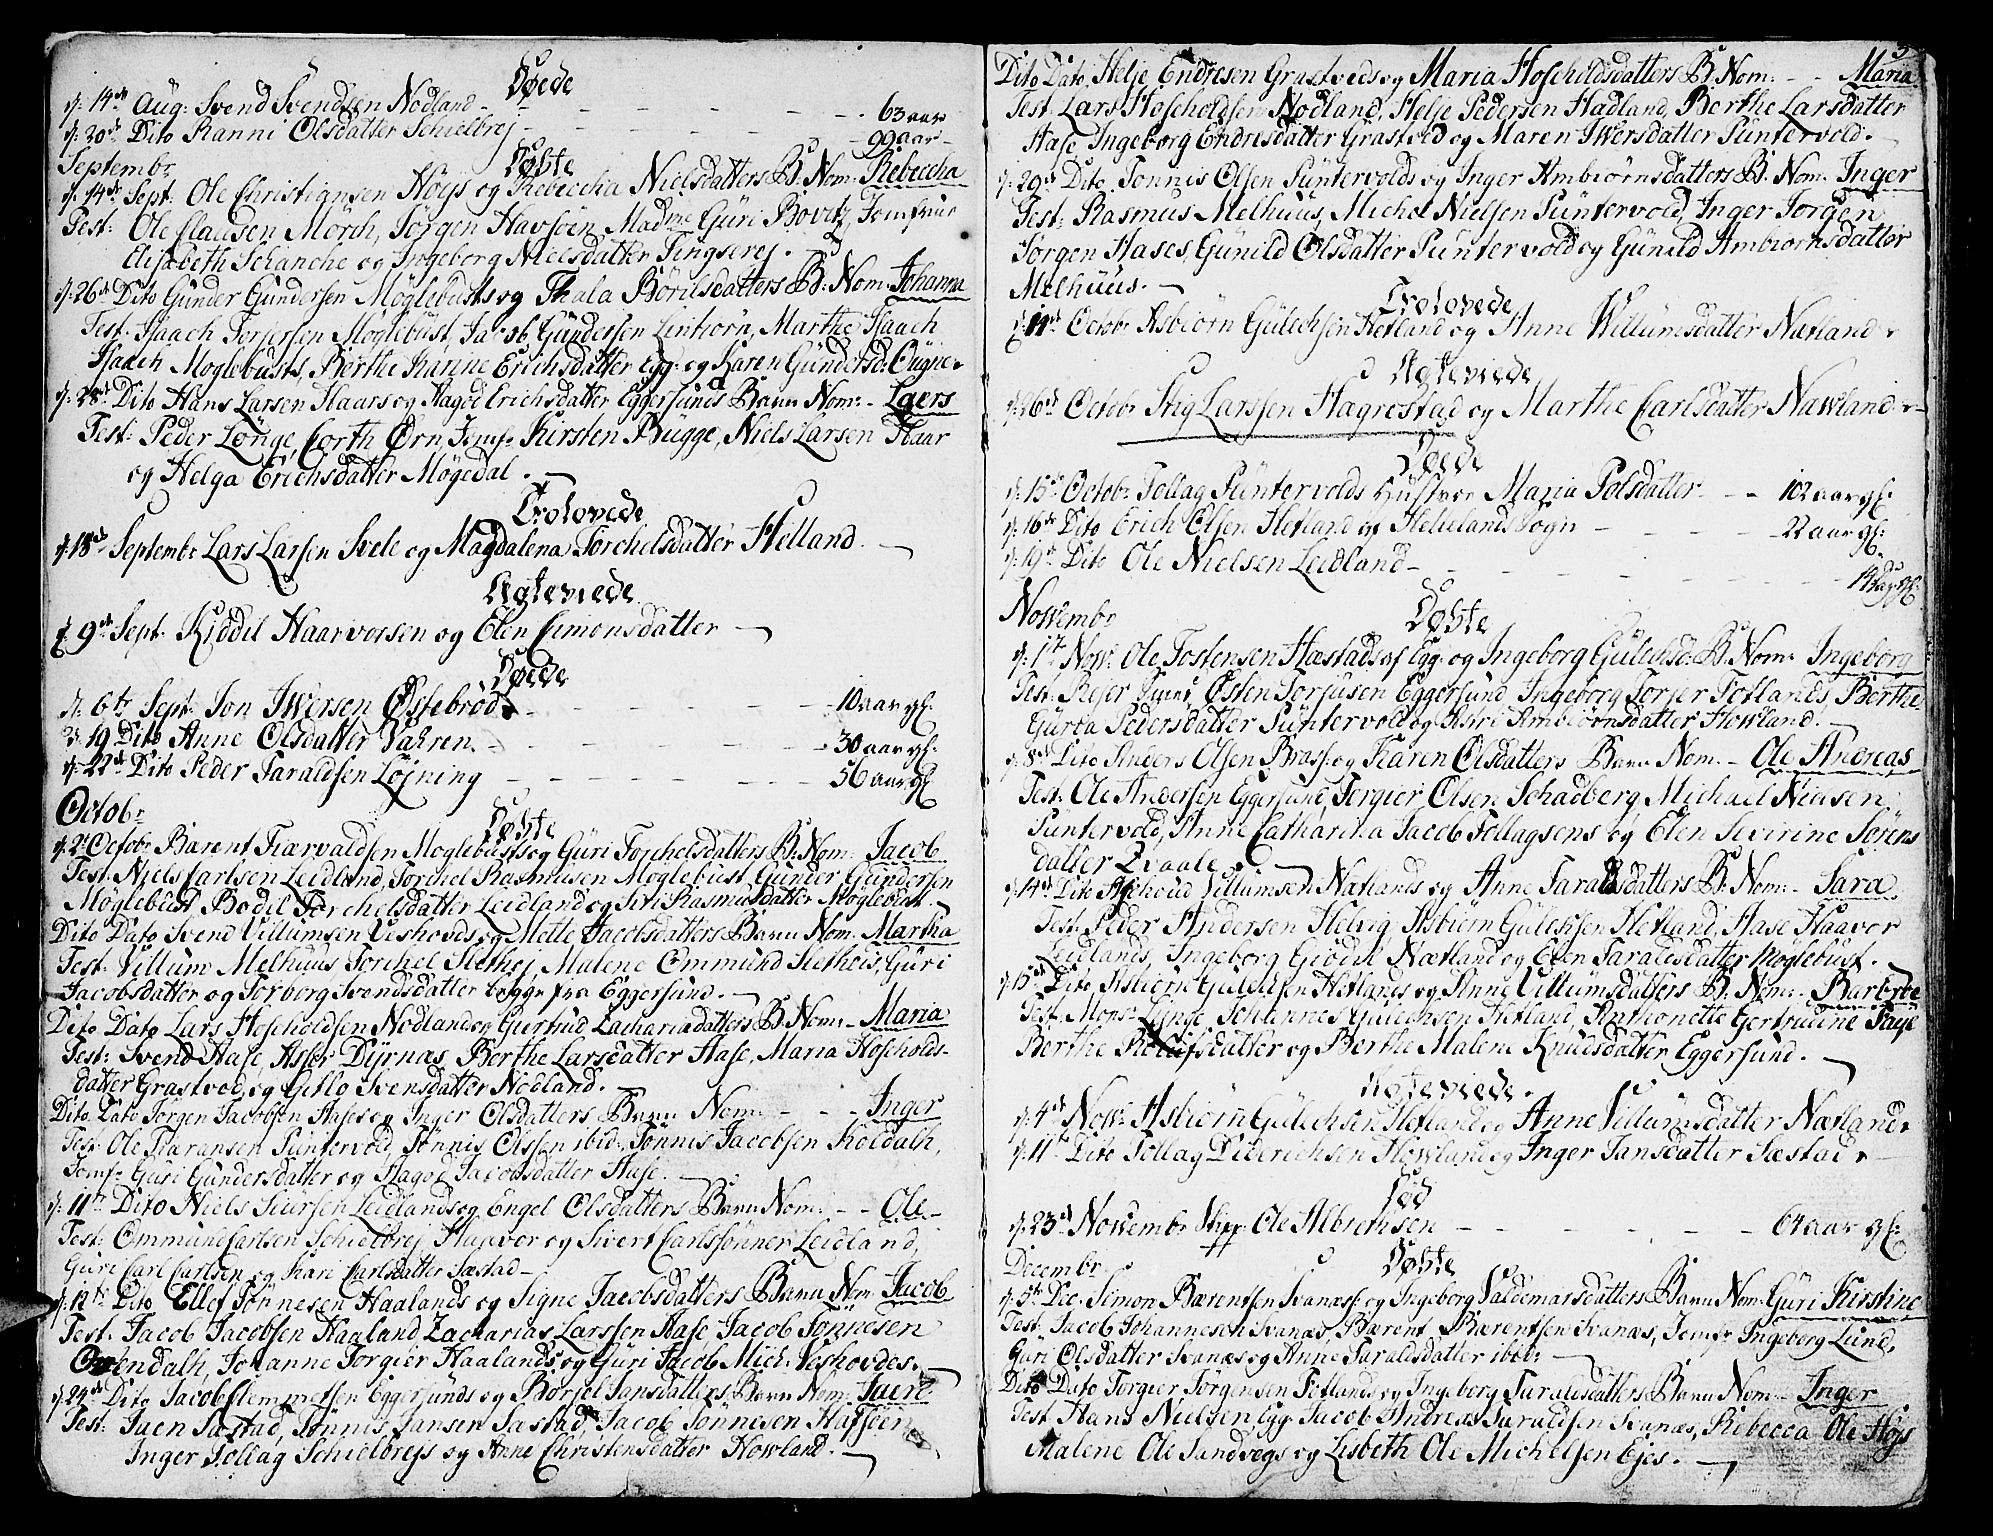 Døede
d: 14de Aug: Svend Svendsen Nodland - - - - - 63 aar
d: 20de Dito Ranni Olsdatter Schielbrej - - - - - 99 aar
Septembr
Døbte
d: 14de Sept. Ole Christiansen Höijs og Rebeccha Nielsdatters B: Nom: Rebeccha
Test: Ole Clausen Mörch, Jörgen Havsöen Madme Güri Bovitz, Jomfrue
Elisabeth Schanche og Ingeborg Nielsdatter Tingserej.
d: 26de Dito Günder Gundersen Möglebusts og Thala Börilsdatters B: Nom: Johanna
Test: Isaach Torjersen Möglebust, Jacob Gündersen Lenhörn, Marthe Isaach
Isaach Moglebusts, Berthe Karine Erichsdatter Egg: og Karen Gündersd:
d: 28de Dito Hans Larsen Haars og Magde Erichsdatter Eggersunds Barn Nom: Laers
Test: Peder Lönge, Corth Örn, Jomfr Kirsten Bügge, Niels Larsen Haar
og Helga Erichsdatter Mögedal.
Trolovede
d: 18de Septembr Lars Larsen Svele og Magdalena Torchelsdatter Helland.
Ægteviede
d: 9de Sept. Kiddil Haarvorsen og Elen Simonsdatter
Døede
d: 6te Sept: Jon Iversen Østebröd - - - 10 aar gl:
d: 19 Dito Anne Olsdatter Vahren - - - 30 aar gl:
d: 22de Dito Peder Taraldsen Löjning - - - 56 aar gl
Octobr
Døbte
d: 2de Octobr Bærent Tiærvaldsen Moglebusts og Güri Torchelsdatters B: Nom: Jacob
Test: Niels Carlsen Leidland, Torchel Rasmusen Moglebust Günder Gündersen
Möglebust Bodil Torchelsdatter Leidland og Siri Rasmusdatter Möglebust.
Dito Dato Svend Villumsen Veshovds og Mette Jacobsdatters Barn Nom: Martha
Test: Villum Melhuus Torchel Slethej, Malene Ommund Slethois, Güri
Jacobsdatter og Torborg Svendsdatter begge fra Eggersund.
Dito Dato Lars Hoscholdsen Nodlands og Gurtrud Zachariadatters B: Nom: Maria
Test: Svend Hase, Asser Dyrnæs, Berthe Larsdatter Hase, Maria Hoscholds-
datter Grastved, og Getlo Svensdatter Nodland.
Dito Dato Jörgen Jacobsen Hases og Inger Olsdatters Barn Nom: - - - Inger
Test: Ole Svaransen Puntervold, Tönnis Olssen ibid: Tönnis Jacobsen Koldalh,
Jomfr Guri Gündersdatter og Magde Jacobsdatter Hase.
d: 11te Dito Niels Siursen Leidlands og Engel Olsdatters Barn Nom: - - Ole
Test: Ommund Carlsen Schielbrej Haavor og Sivert Carlssönner Leidland,
Guri Carl Carlsen og Kari Carlsdatter Sæstad
d: 12te Dito Ellef Tönnesen Haalands og Signe Jacobsdatters Barn Nom: Jacob
Test: Jacob Jacobsen Haaland Zacharias Larssen Hase Jacob Tönnesen
Ovendalh, Johanne Torgier Haalands og Guri Jacob Mich: Veshovdes.
d: 24de Dito Jacob Clemmetsen Eggersunds og Börsel Jansdatters Barn Nom: Juert
Test: Juen Sæstad, Tönnis Jansen Sæstad, Jacob Tönnisen Hafsöen
Inger Tollag Schielbrejs og Anne Christensdatter Howland.
Dito Dato Helje Endresen Grastveds og Maria Hoscholdsdatters B: Nom: - - Maria
Test: Lars Hoscholdsen Nodland, Helje Pedersen Hadland, Berthe Larsdatter
Hase Ingeborg Endresdatter Grastved og Maren Iwersdatter Puntervold.
d: 29de Dito Tonnis Olsen Püntervolds og Inger Ambiörnsdatters B: Nom: Inger
Test: Rasmus Melhuus, Michel Nielsen Püntervold, Inger Jorgen
Jorgen Hases, Günild Olsdatter Puntervold og Günild Ambiornsdatter
Melhuus.
Trolovede
d: 14de Octobr Asbiörn Gülechsen Hetland og Anne Willumsdatter Nætland
Ægteviede
d: 26de Octobr Stig Larssen Hægrestad og Marthe Carlsdatter Nawland
Døede
d: 15de Octobr Tollag Püntervolds Hustroe Maria Polsdatter - - 102 aar gl:
d: 16de Dito Erich Olsen Hetland af Hellelands Sogn - - - 22 aar gl:
d: 19de Dito Ole Nielsen Leidland - - - - 14 dage gl:
Novembr
Døbte
d: 1te Now: Ole Tostensen Hæstads af Egg: og Ingeborg Gülechsd: B: Nom: Ingeborg
Test: Resser Östen Torjusen Eggersund Ingeborg Torjer Totlands, Berthe
Gurta Pedersdatter Püntervold og Kari Ambiörnsdatter Howland.
d: 8de Dito Anders Olsen Bross: og Karen Olsdatters Barn Nom: Ole Andreas
Test: Ole Andersen Eggersund, Torgier Olsen Schadberg Michael Nielsen
Püntervold, Anne Catharina Jacob Tollagsens og Elen Sevirine Sörens
datter Qvaale.
d: 14de Dito Villumsen Nætlands og Anne Taraldsdatters B: Nom: - Sara
Test: Peder Andersen Helvig Asbiörn Gülechsen Hetland, Aase Haavor
Leidlands, Ingeborg Giödel Nætland og Elen Taraldsdatter Möglebust.
d: 15de Dito Asbiörn Gulechsen Hetlands og Anne Villumsdatters B: Nom: Barbroe
Test: Monsr Lynge, Johannes Gulechsen Hetland, Anthonette Gertrudine Faye
Berthe Rolufsdatter og Berthe Malene Knudsdatter Eggersund.
Ægteviede.
d: 4de Now: Asbiörn Gülechsen Hetland og Anne Villumsdatter Nætland
d: 11te Dito Tollag Diderichsen Howland og Inger Jansdatter Sæstad
Død
d: 23de Novembr Skipp: Ole Albrethsen - - - - 64 aar gl:
Decembr
Døbte
d: 5te Dec: Simon Bærentsen Svanæs: og Ingeborg Valdemarsdatters Barn Nom: Güri Kirstine
Test: Jacob Johannesen Svanæs, Bærent Bærentsen Svanæs, Jomfr Ingeborg Lund,
Güri Olsdatter Svanæs og Anne Taraldsdatter ibid:
Dito Dato Torgier Jörgensen Totlands og Ingeborg Taraldsdatters Barn Nom: - Inger
Test: Hans Nielsen Egg: Jacob Andreas Taraldsen Svanæs, Rebecca Ole Höijs
Malene Ole Sandvegs og Lisbeth Ole Michelsen Ejes.